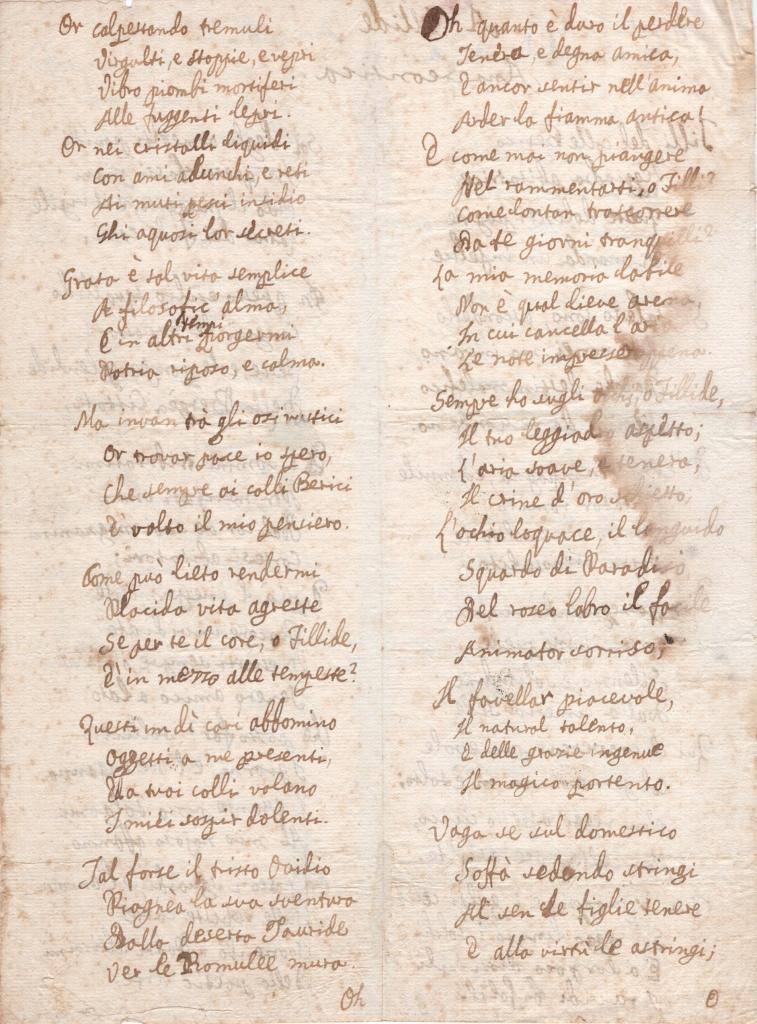 Or calpestando tremuli
Virgulti, e stoppie, e vepri
Vibro piombi mortiferi
Alle fuggenti lepri.
Or nei cristalli liquidi
Con ami adunchi, e reti
Ai muti pesci insidio
Ghi aquosi lor secreti.
Grata è tal vita semplice
A filosofic' alma,
tempi
E in altri porgermi
Potria riposo, e calma.
Ma invan trà gli ozi rustici
Or trovar pace io spero,
Che sempre ai colli Berici
È volto il mio pensiero.
Come può lieto rendermi
Placida vita agreste
Se per te il core, o Fillide,
È in mezzo alle tempeste?
Questi un dì cari abbomino
Oggetti a me presenti,
Ma a tuoi colli volano
I miei sospir dolenti.
Tal forse il tristo Ovidio
Piagnea la sua sventura
Dalla deserta Tauride
Ver le Romulee mura.
Oh
Oh quanto è duro il perdere
Tenera, e degna amica,
E ancor sentir nell'anima
Arder la fiamma antica!
E come mai non piangere
Nel rammentarti, o Filli?
Come lontan trascorrere
Da te giorni tranquilli?
La mia memoria labile
Non è qual lieve arena,
In cui cancella l'aria
Le note impresse appena.
Sempre ho sugli occhi, o Fillide,
Il tuo leggiadro aspetto;
L'aria soave, e tenera,
Il crine d'oro schietto,
L'ochio loquace, il languido
Sguardo di Paradiso,
Del roseo labro il facile
Animator sorriso,
Il favellar piacevole,
Il natural talento,
E delle grazie ingenue
Il magico portento.
Vaga se sul domestico
Soffà sedendo stringi
Al sen le figlie tenere
E alla virtù le astringi;
O